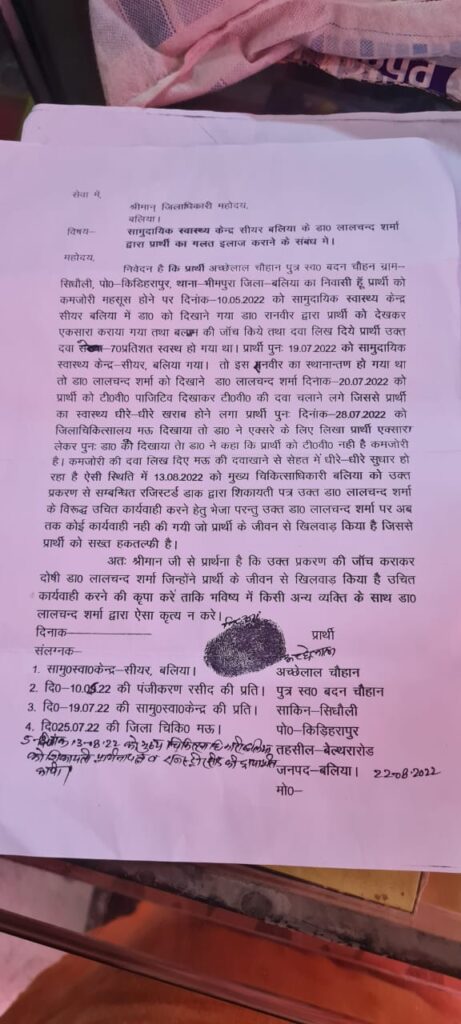 सेवा में,
श्रीमान् जिलाधिकारी महोदय,
बलिया।
विषय– सामुदायिक स्वास्थ्य केन्द्र सीयर बलिया के डा0 लालचन्द शर्मा
द्वारा प्रार्थी का गलत इलाज कराने के संबंध मे।
महोदय,
निवेदन है कि प्रार्थी अच्छेलाल चौहान पुत्र स्व0 बदन चौहन ग्राम–
सिधौली, पो0–किडिहरापुर, थाना–भीमपुरा जिला–बलिया का निवासी हूँ प्रार्थी को
कमजोरी महसूस होने पर दिनांक–10.05.2022 को सामुदायिक स्वास्थ्य केन्द्र
सीयर बलिया में डा0 को दिखाने गया डा0 रानवीर द्वारा प्रार्थी को देखकर
एकसारा कराया गया तथा बलाम की जाँच किये तथा दवा लिख दिये प्रार्थी उक्त
दवा से –70प्रतिशत स्वस्थ हो गया था। प्रार्थी पुनः 19.07.2022 को सामुदायिक
स्वास्थ्य केन्द्र–सीयर, बलिया गया। तो इस रानवीर का स्थानान्तण हो गया था
तो डा0 लालचन्द शर्मा को दिखाने डा0 लालचन्द शर्मा दिनाक–20.07.2022 को
प्रार्थी को टी0वी0 पाजिटिव दिखाकर टी0वी0 की दवा चलाने लगे जिससे प्रार्थी
का स्वास्थ्य धीरे–धीरे खराब होने लगा प्रार्थी पुनः दिनांक–28.07.2022 को
जिलाचिकित्सालय मऊ दिखाया तो डा0 ने एक्सरे के लिए लिखा प्रार्थी एक्सारा
लेकर पुनः डा0 को दिखाया तेा डा0 ने कहा कि प्रार्थी को टी0वी0 नही है कमजोरी
है। कमजोरी की दवा लिख दिए मऊ की दवाखाने से सेहत में धीरे–धीरे सुधार हो
रहा है ऐसी स्थिति में 13.08.2022 को मुख्य चिकित्साधिकारी बलिया को उक्त
प्रकरण से सम्बन्धित रजिस्टर्ड डाक द्वारा शिकायती पत्र उक्त डा0 लालचन्द शर्मा
के विरूद्ध उचित कार्यवाही करने हेतु भेजा परन्तु उक्त डा0 लालचन्द शर्मा पर अब
तक कोई कार्यवाही नही की गयी जो प्रार्थी के जीवन से खिलवाड़ किया है जिससे
प्रार्थी को सख्त हकतल्फी है।
अतः श्रीमान जी से प्रार्थना है कि उक्त प्रकरण की जाँच कराकर
दोषी डा0 लालचन्द शर्मा जिन्होंने प्रार्थी के जीवन से खिलवाड़ किया है उचित
कार्यवाही करने की कृपा करें ताकि भविष्य में किसी अन्य व्यक्ति के साथ डा0
लालचन्द शर्मा द्वारा ऐसा कृत्य न करे।
दिनाक–––––––––– प्रार्थी
संलग्नक– अच्छेलाल
1. सामु0स्वा0केन्द्र–सीयर, बलिया। अच्छेलाल चौहान
2. दि0–10.05.22 की पंजीकरण रसीद की प्रति। पुत्र स्व0 बदन चौहान
3. दि0–19.07.22 की सामु0स्वा0केन्द्र की प्रति। साकिन–सिधौली
4. दि025.07.22 की जिला चिकि0 मऊ। पो0–किड़िहरापुर
5– दिनांक 13-08-22 को मुख्य चिकित्साधिकारी बलिया तहसील–बेल्थरारोड
को शिकायती प्रार्थनापत्र व रजिस्ट्री रसीद की छायाप्रति जनपद–बलिया। 22-08-2022
कापी। मो0–